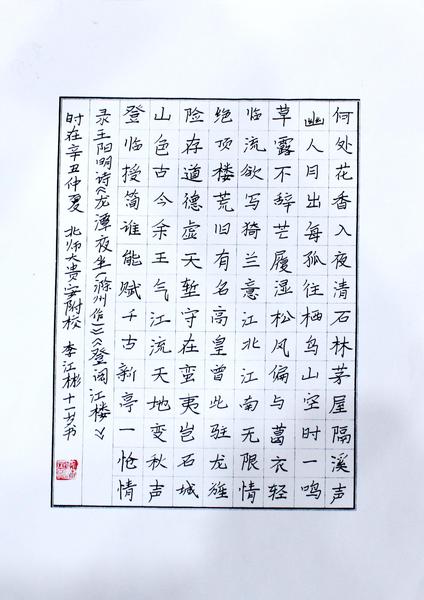 何处花香入夜清石林茅屋隔溪声
幽人月出每孤往栖鸟山空时一鸣
草露不辞芒履湿松风偏与葛衣轻
临流欲写猗兰意江北江南无限情
绝顶楼荒旧有名高皇曾此驻龙旌
险存道德虚天堑守在蛮夷岂石城
山色古今余王气江流天地变秋声
登临授简谁能赋千古新亭一怆情
录王阳明诗《龙潭夜坐(滁州作)》《登阅江楼》
时在辛丑仲夏 北师大贵安附校 李江彬十一岁书